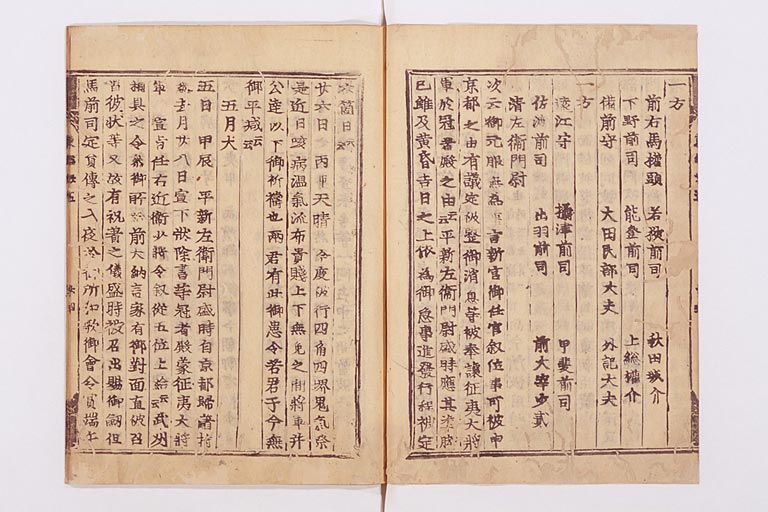 一方
前右馬權頭 若狹前司 秋田城介
下野前司 能登前司 上総權介
備前守 大田民部大夫 外記大夫
一方
遠江守 攝津前司 甲斐前司
佐渡前司 出羽前司 前大宰少貳
清左衛門尉
次云御元服無為事言新官御任官叙位事可被申
京都之由有議定被整御消息等被奉讓征夷大將
軍於冠者殿之由云云平新左衛門尉盛時應其
已雖及黄昏吉日之上依為御急事進發行程被定
六箇日云云
廿六日 丙申 天晴 今夜被行四角四界鬼氣祭
是近日咳病温氣流布貴賤上下無免之間將軍并
公達以下御祈禱也兩君有此御患令若君于今無
御平減云云
五月大
五日 甲辰 平新左衛門尉盛時自京都歸著持
去月廿八日宣下狀除書等冠者殿蒙征夷大將
軍 宣旨任右近衛少將令叙從五位上給云云武州
相具之令參御所給前大納言家有御對面直被召
彼狀等又故有祝著之儀盛時被召出賜御劔但
馬前司定員傳之入夜於御所和歌御會令員端作